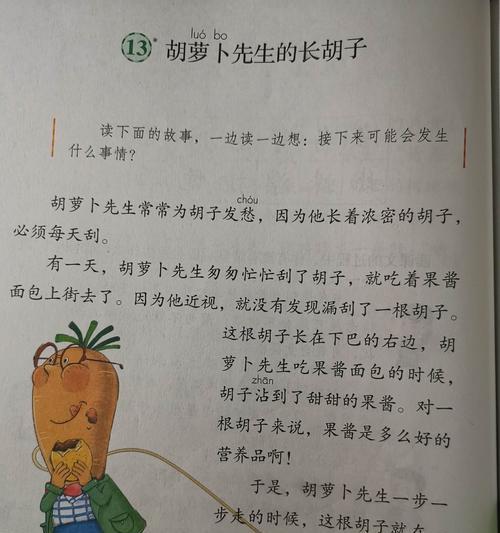 luó bo
13* 胡萝卜先生的长胡子
读下面的故事，一边读一边想：接下来可能会发生
什么事情？
chóu
胡萝卜先生常常为胡子发愁，因为他长着浓密的胡子，
必须每天刮。
有一天，胡萝卜先生匆匆忙忙刮了胡子，就吃着果酱
面包上街去了。因为他近视，就没有发现漏刮了一根胡子。
这根胡子长在下巴的右边，胡
萝卜先生吃果酱面包的时候，
zhān
胡子沾到了甜甜的果酱。对一
根胡子来说，果酱是多么好的
营养品啊！
于是，胡萝卜先生一步一
步走的时候，这根胡子就在